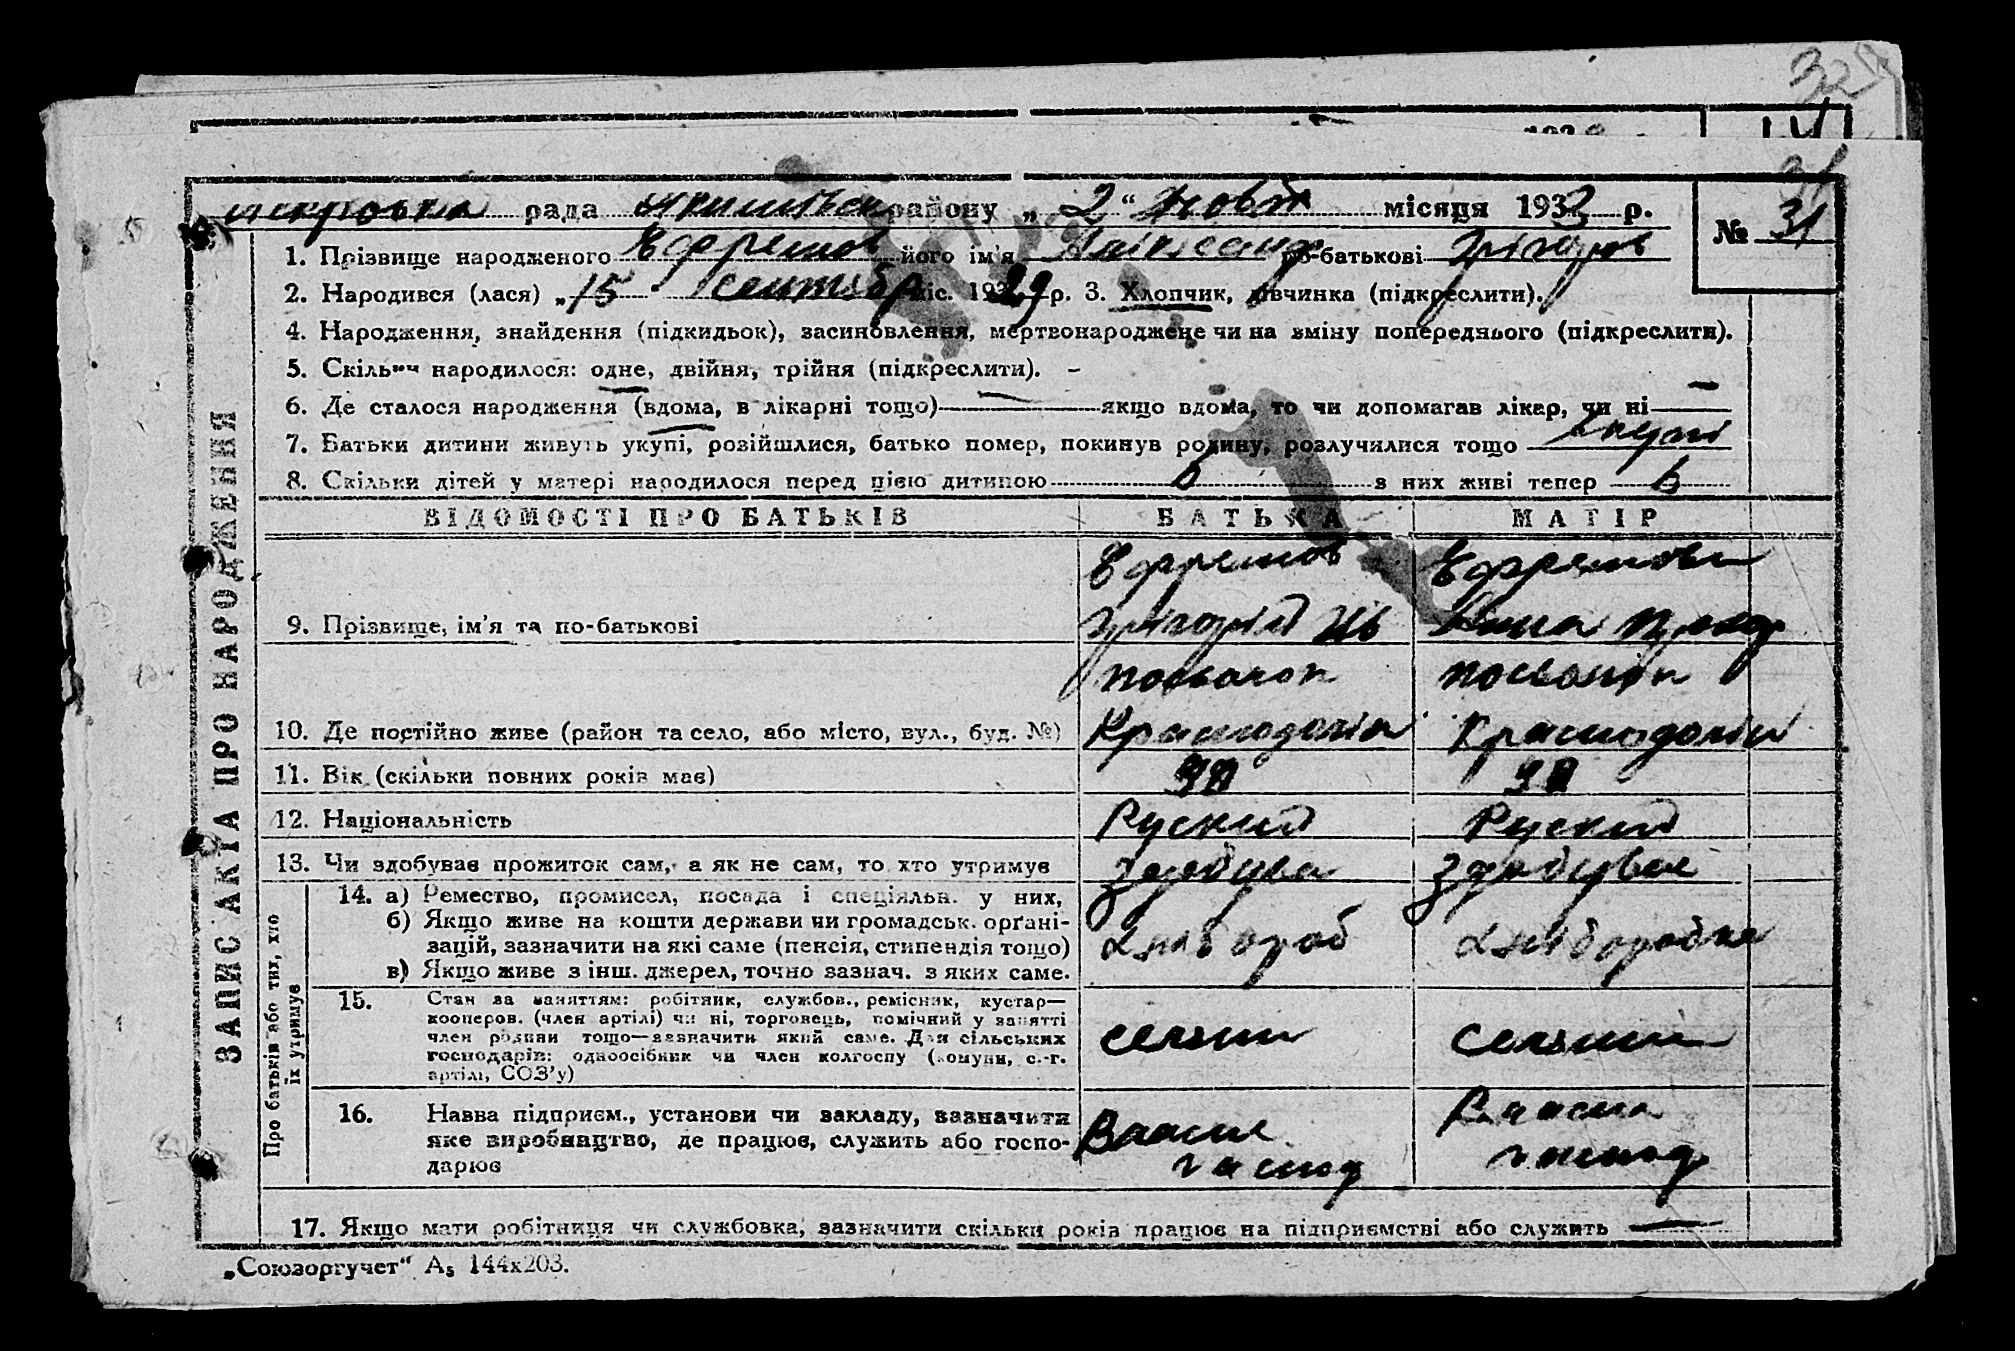 32
31
рада району „ 2 “ Жовт місяця 1933 р.
№ 31
1. Прізвище народженого Ефремов його ім'я Александр по-батькові Григоров
2. Народився (лася) „ 15 сентябр міс. 1929 р. 3. Хлопчик, дівчинка (підкреслити).
4. Народження, знайдення (підкидьок), засиновлення, мертвонароджене чи на зміну попереднього (підкреслити).
5. Скільки народилося: одне, двійня, трійня (підкреслити). –
6. Де сталося народження (вдома, в лікарні тощо) — якщо вдома, то чи допомагав лікар, чи ні —
7. Батьки дитини живуть укупі, розійшлися, батько помер, покинув родину, розлучилися тощо
8. Скільки дітей у матері народилося перед цією дитиною 6 з них живі тепер 6
ВІДОМОСТІ ПРО БАТЬКІВ БАТЬКА МАТІР
Ефремов Ефремова
9. Прізвище, ім'я та по-батькові Григорий Ив Анна
10. Де постійно живе (район та село, або місто, вул., буд. №)
11. Вік (скільки повних років має)
12. Національність Руский Руский
13. Чи здобуває прожиток сам, а як не сам, то хто утримує здобува здобувае
14. а) Ремество, промисел, посада і спеціяльн. у них,
б) Якщо живе на кошти держави чи громадськ. орґані-
зацій, зазначити на які саме (пенсія, стипендія тощо) хлібороб хліборобка
в) Якщо живе з інш. джерел, точно зазнач. з яких саме.
15. Стан за заняттям: робітник, службов., ремісник, кустар—
кооперов. (член артілі) чи ні, торговець, помічний у занятті
член родини тощо—зазначити який саме. Для сільських
господарів: одноосібник чи член колгоспу (комуни, с.-г.
артілі, СОЗ'у)
16. Назва підприєм., установи чи закладу, зазначити
яке виробництво, де працює, служить або госпо-
дарює
17. Якщо мати робітниця чи службовка, зазначити скільки років працює на підприємстві або служить —
ЗАПИС АКТА ПРО НАРОДЖЕННЯ
Про батьків або тих, хто
їх утримує
„Союзоргучет“ А₅ 144х203.